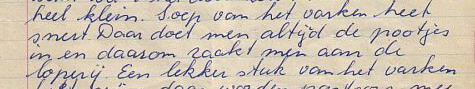 heel klein. Soep van het varken heet
snert Daar doet men altijd de pootjes
in en daarom raakt men aan de
loperij. Een lekker stuk van het varken
daar worden